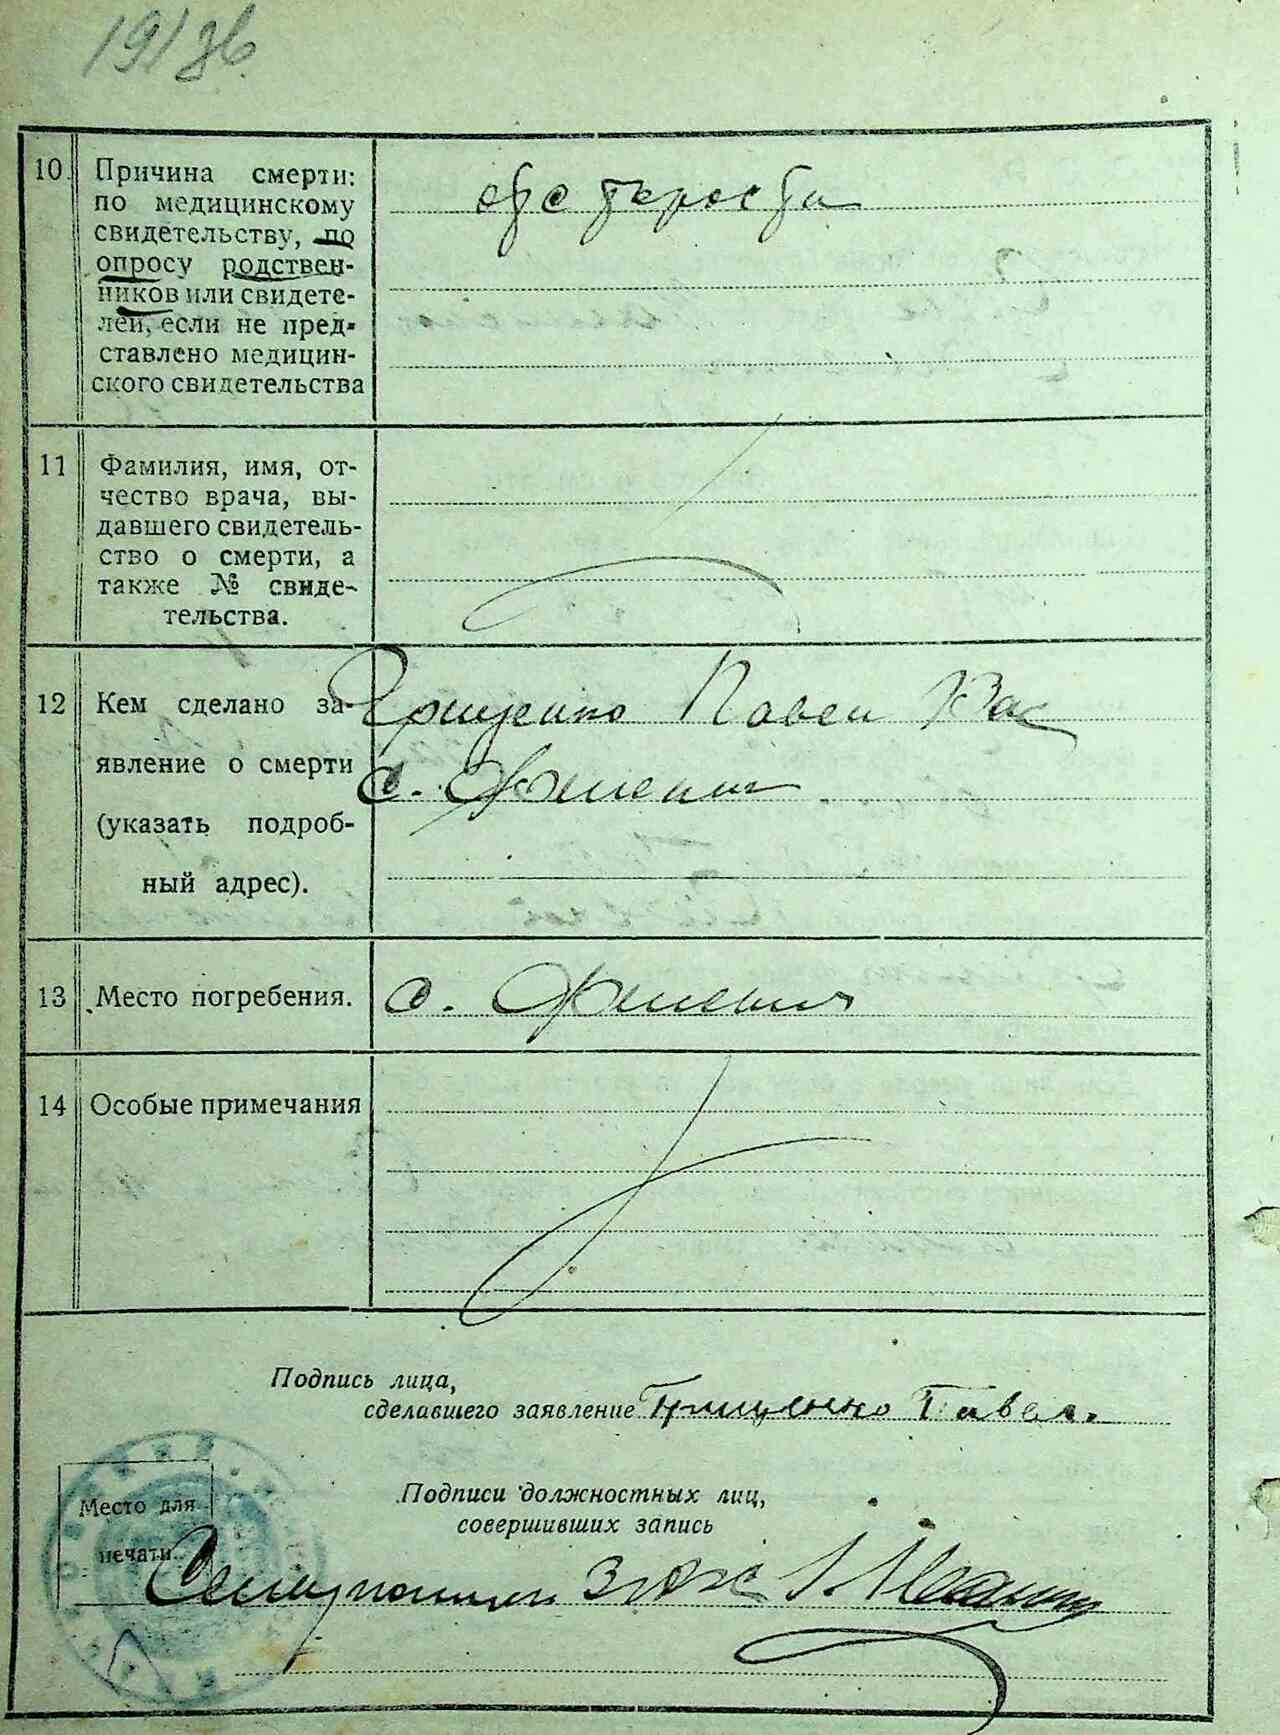 10. Причина смерти:
по медицинскому
свидетельству, по
опросу родствен-
ников или свидете-
лей, если не пред-
ставлено медицин-
ского свидетельства
от старости
11 Фамилия, имя, от-
чество врача, вы-
давшего свидетель-
ство о смерти, а
также № свиде-
тельства.
12 Кем сделано за-
явление о смерти
(указать подроб-
ный адрес).
Грищенко Павел Вас
с.
13 Место погребения.
с.
14 Особые примечания
Подпись лица,
сделавшего заявление Грищенко Павел.
Подписи должностных лиц,
совершивших запись
Место для
печати.